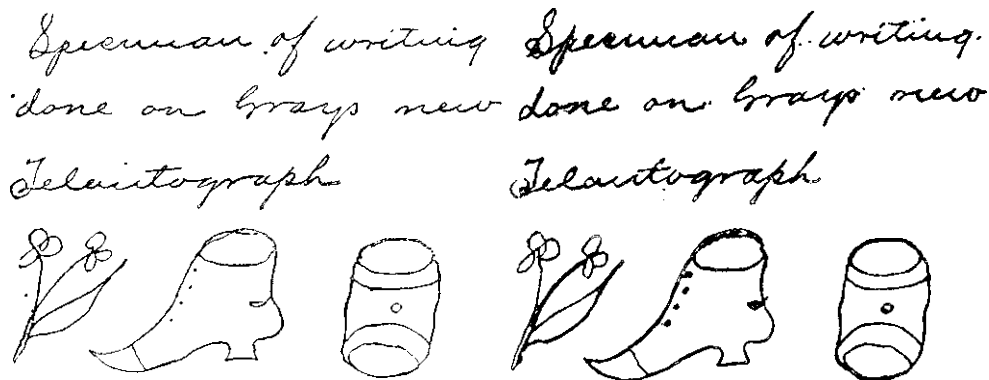 Specimen of writing
done on Grays new
Telautograph
Specimen of writing.
done on Grays new
Telautograph